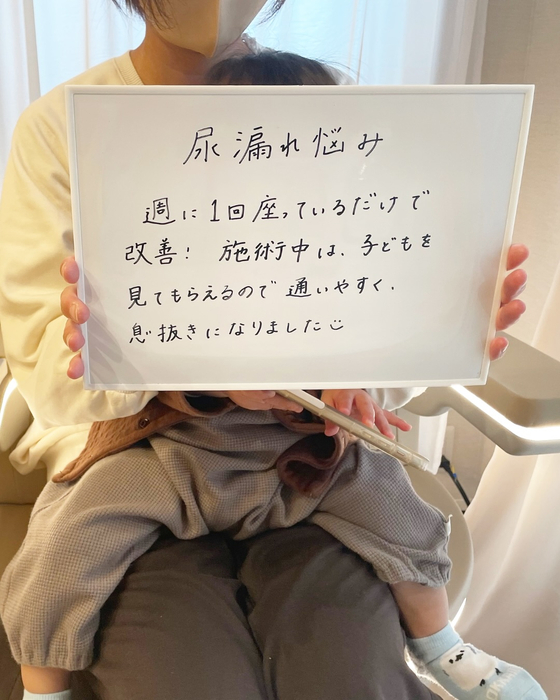 尿漏れ悩み
週に1回座っているだけで
改善! 施術中は、子どもを
見てもらえるので通いやすく、
息抜きになりました